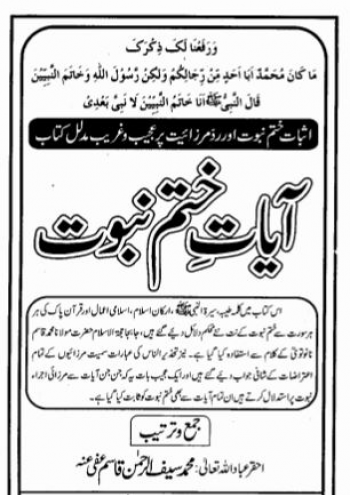 وَرَفَعْنَا لَكَ ذِكْرَكَ
مَا كَانَ مُحَمَّدٌ اَبَا اَحَدٍ مِنْ رِجَالِكُمْ وَلٰكِنْ رَّسُوْلَ اللّٰهِ وَخَاتَمَ النَّبِيّيْنَ
قَالَ النَّبِيُّ ﷺ اَنَا خَاتَمُ النَّبِيّيْنَ لَا نَبِيَّ بَعْدِيْ
اثبات ختم نبوت اور رد مرزائیت پر عجیب و غریب مدلل کتاب
آیاتِ ختم نبوت
اس کتاب میں کلمہ طیبہ، سیرۃ النبی ﷺ، ارکان اسلام، اسلامی اعمال اور قرآن پاک کی ہر
ہر سورت سے ختم نبوت کے نت نئے محکم دلائل دیے گئے ہیں، جابجا حجۃ الاسلام حضرت مولانا محمد قاسم
نانوتویؒ کے کلام سے استفادہ کیا گیا ہے۔ نیز تحذیر الناس کی عبارات سمیت مرزائیوں کے تمام
اعتراضات کے شافی جواب دیے گئے ہیں اور ایک عجیب بات یہ کہ جن جن آیات سے مرزائی اجراء
نبوت پر استدلال کرتے ہیں ان تمام آیات سے بھی ختم نبوت کو ثابت کیا گیا ہے۔
جمع و ترتیب
احقر عباد اللہ تعالیٰ: محمد سیف الرحمٰن قاسم عفی عنہ